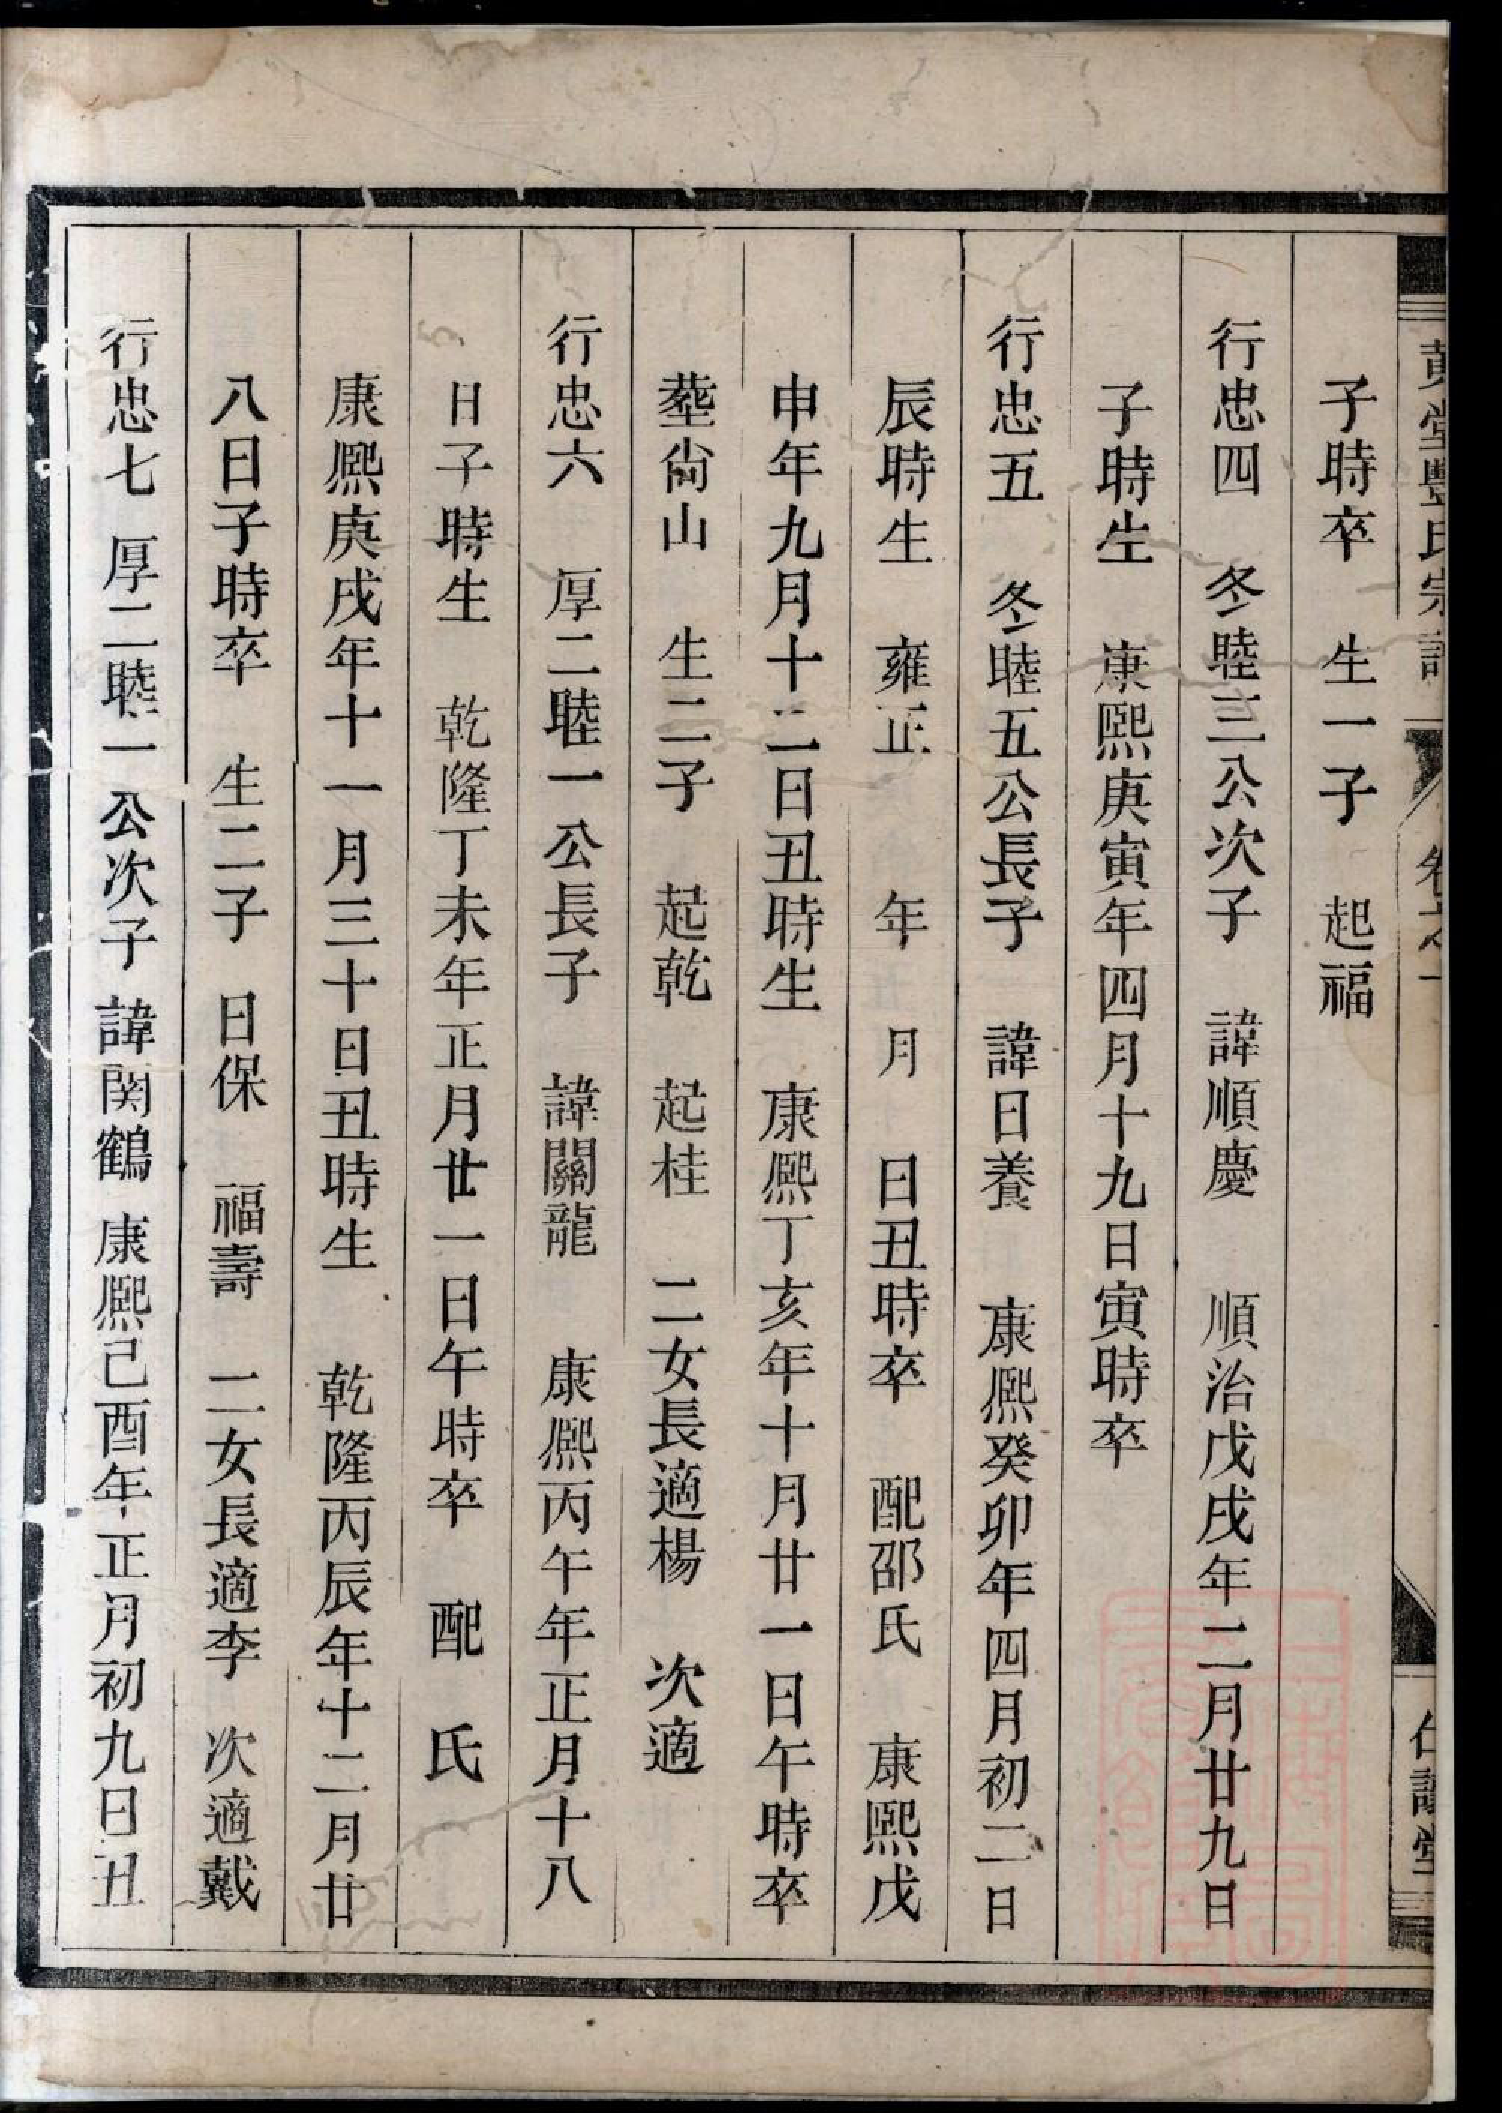 黃堂豐氏宗譜 卷之一
子時卒 生一子 起福
行忠四 冬睦三公次子 諱順慶 順治戊戌年二月廿九日
子時生 康熙庚寅年四月十九日寅時卒
行忠五 冬睦五公長子 諱日養 康熙癸卯年四月初二日
辰時生 雍正 年 月 日丑時卒 配邵氏 康熙戊
申年九月十二日丑時生 康熙丁亥年十月廿一日午時卒
塟尙山 生二子 起乾 起桂 二女長適楊 次適
行忠六 厚二睦一公長子 諱關龍 康熙丙午年正月十八
日子時生 乾隆丁未年正月廿一日午時卒 配 氏
康熙庚戌年十一月三十日丑時生 乾隆丙辰年十二月廿
八日子時卒 生二子 日保 福壽 二女長適李 次適戴
行忠七 厚二睦一公次子 諱関鶴 康熙己酉年正月初九日丑